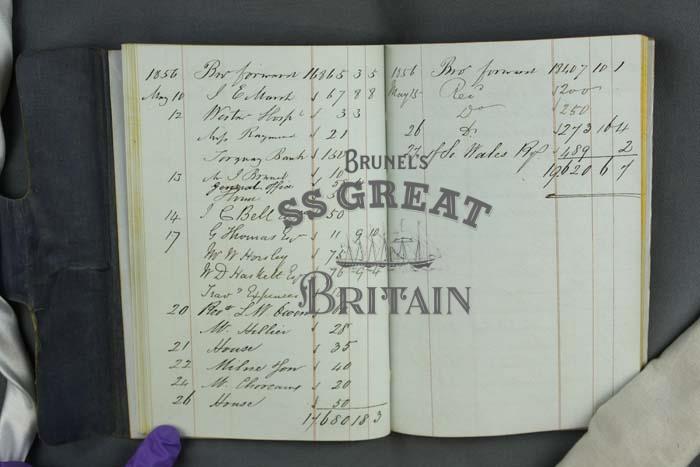 1856 Bro' forward 16865 3 5
May 10 J E Marsh 67 8 8
12 3 3
Miss Raymond 21
Torquay Bank 150
13 J Brunel 10
General Office
House
14 J C Bell 50
17 G Thomas Esq 11 9 10
Mr W Horsley 75
W D Haskett Esq 76 9 4
Trav Expenses
20 Rev L W Owen
Mr Hillier 28
21 House 35
22 Milne Son 40
24 20
26 House 50
17680 18 3
1856 Bro' forward 18407 10 1
May 15 Rec 200
Do 250
26 Do 273 16 4
27 So Wales Ry 489 2
19620 6 7
BRUNEL'S
SS GREAT
BRITAIN